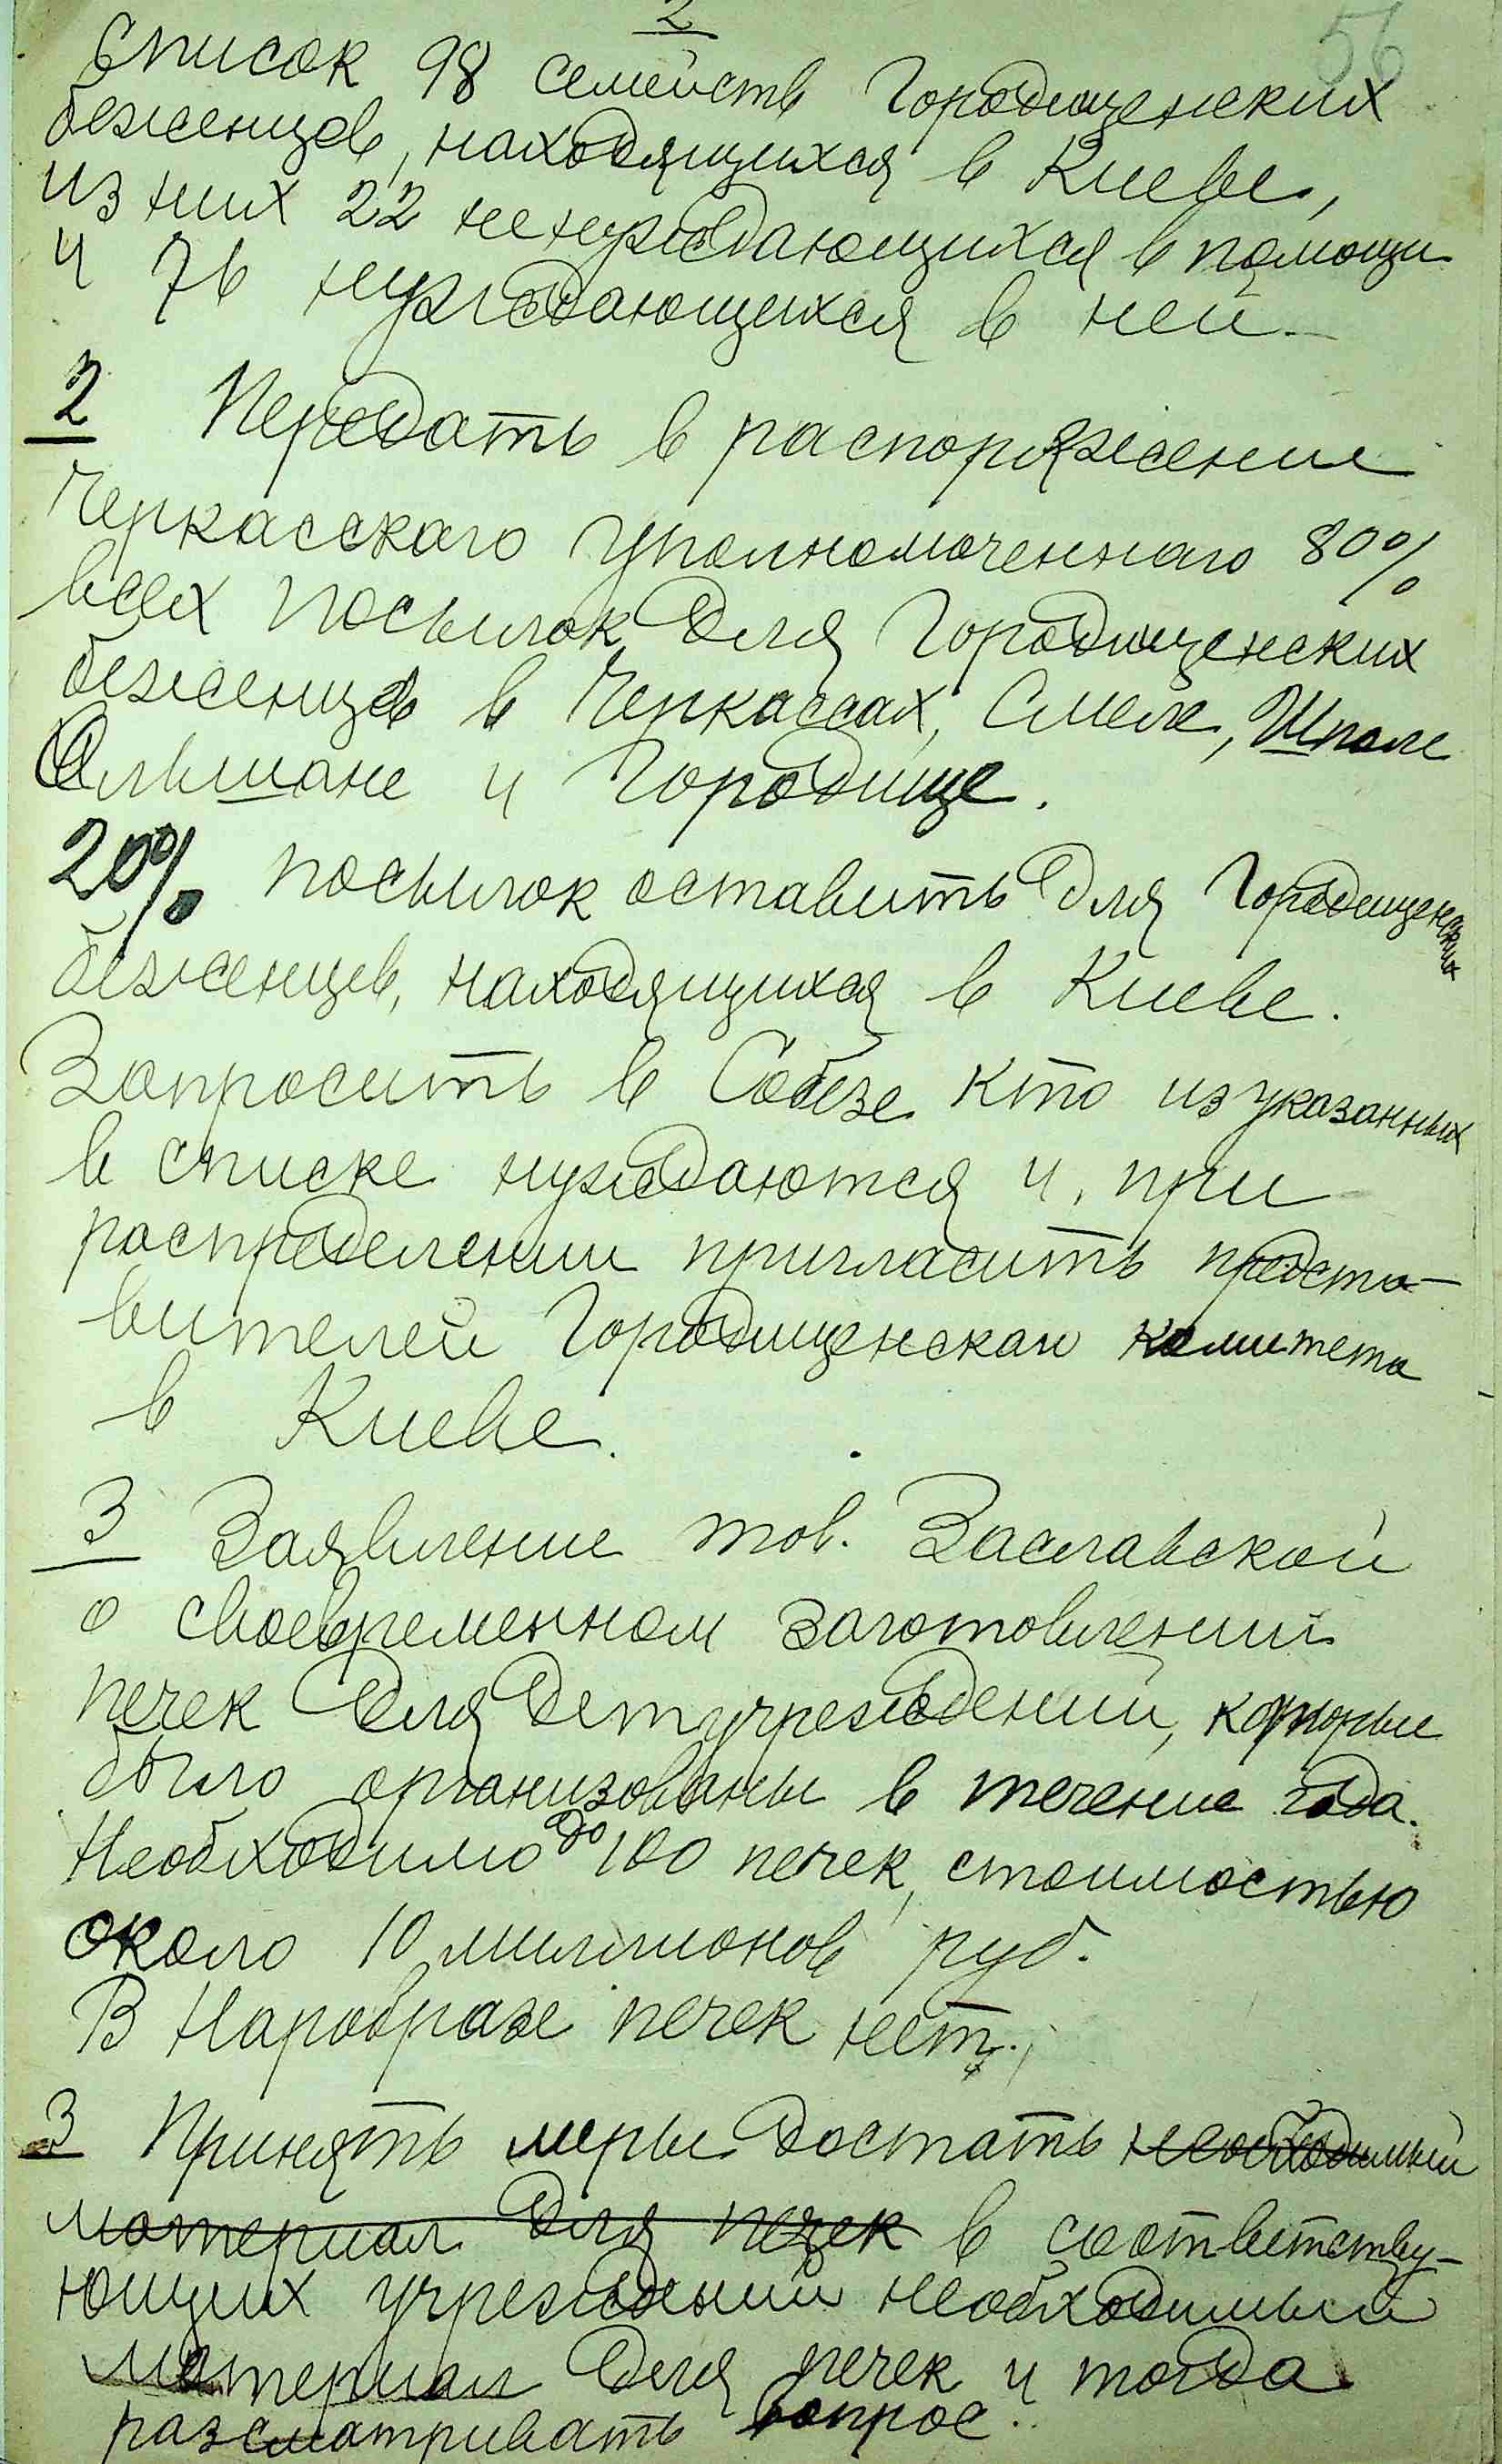 2
56
Список 98 семейств Городищенских
беженцев, находящихся в Киеве,
из них 22 не нуждающихся в помощи
и 76 нуждающихся в ней.
2 Передать в распоряжение
Черкасскаго Уполномоченнаго 80%
всех посылок для Городищенских
беженцев в Черкассах, Смеле, Шполе
Ольшане и Городище.
20% посылок оставить для Городищенских
беженцев, находящихся в Киеве.
Запросить в Собезе кто из указанных
в списке нуждаются и, при
распределении пригласить предста-
вителей Городищенскаго комитета
в Киеве.
3 Заявление тов. Заславской
о своевременном заготовлении
печек для детучреждений, которые
было организованы в течение года.
Необходимо до 100 печек, стоимостью
около 10 миллионов руб.
В Наробразе печек нет.
3 Принять меры достать необходимый
материал для печек в соответству-
ющих учреждений необходимый
материал для печек и тогда
разсматривать вопрос.